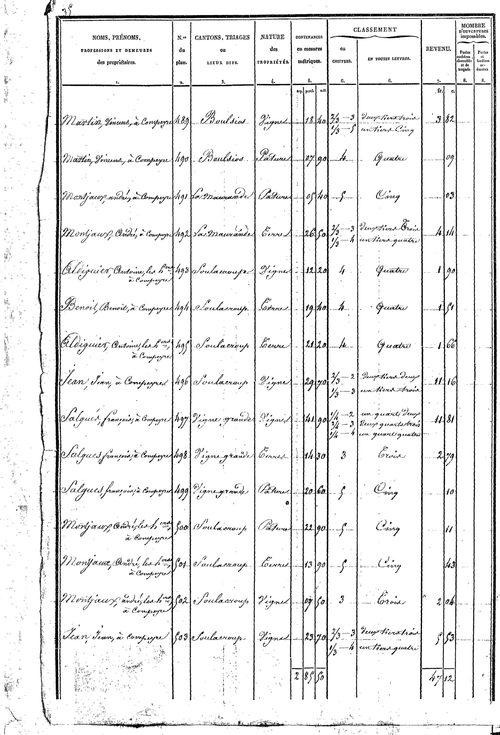 NOMS, PRÉNOMS,
PROFESSIONS ET DEMEURES
des propriétaires.
N.os
du
plan.
CANTONS, TRIAGES
ou
LIEUX DITS.
NATURE
des
PROPRIÉTÉS.
CONTENANCES
en mesures
métriques.
CLASSEMENT
en
CHIFFRES.
EN TOUTES LETTRES.
REVENU.
NOMBRE
D'OUVERTURES
imposables.
1. 2. 3. 4. 5. 6. 7. 8.
Martin, Vincens, à Compeyre 489 Boulsios Vigne 18 40 2/3 — 3 deux tiers trois 3 82
1/3 — 5 un tiers Cinq
Martin, Vincens, à Compeyre 490 Boulsios Pâture 07 90 4 Quatre 09
Montjaux, andré, à Compeyre 491 Las Maurande Pâture 05 40 5 Cinq 03
Montjaux, André, à Compeyre 492 Las Maurande Terre 26 50 2/3 — 3 deux tiers Trois 4 14
1/3 — 4 un tiers quatre
Aldiguier, Antoine, les h.ers 493 Soulacroup Vigne 12 20 4 Quatre 1 90
à Compeyre
Benoit, Benoit, à Compeyre 494 Soulacroup Terre 19 40 4 Quatre 1 51
Aldiguier, Antoine, les h.ers 495 Soulacroup Terre 21 20 4 Quatre 1 66
à Compeyre
Jean, Jean, à Compeyre 496 Soulacroup Vigne 29 70 2/3 — 2 deux tiers deux 11 16
1/3 — 3 un tiers trois
Salgues, françois, à Compeyre 497 Vigne grande Vigne 41 90 1/4 — 2 un quart deux 11 81
2/4 — 3 deux quarts trois
1/4 — 4 un quart quatre
Salgues, françois, à Compeyre 498 Vigne grande Terre 14 30 3 Trois 2 79
Salgues, françois, à Compeyre 499 Vigne grande Pâture 20 60 5 Cinq 10
Montjaux, André, les h.ers 500 Soulacroup Pâture 22 90 5 Cinq 11
à Compeyre
Montjaux, André, les h.ers 501 Soulacroup Terre 13 90 5 Cinq 43
à Compeyre
Montjaux, andré, les h.ers 502 Soulacroup Vigne 07 50 3 Trois 2 04
à Compeyre
Jean, Jean, à Compeyre 503 Soulacroup Vigne 23 70 2/3 — 3 deux tiers trois 5 53
1/3 — 4 un tiers quatre
2 85 50 47 12